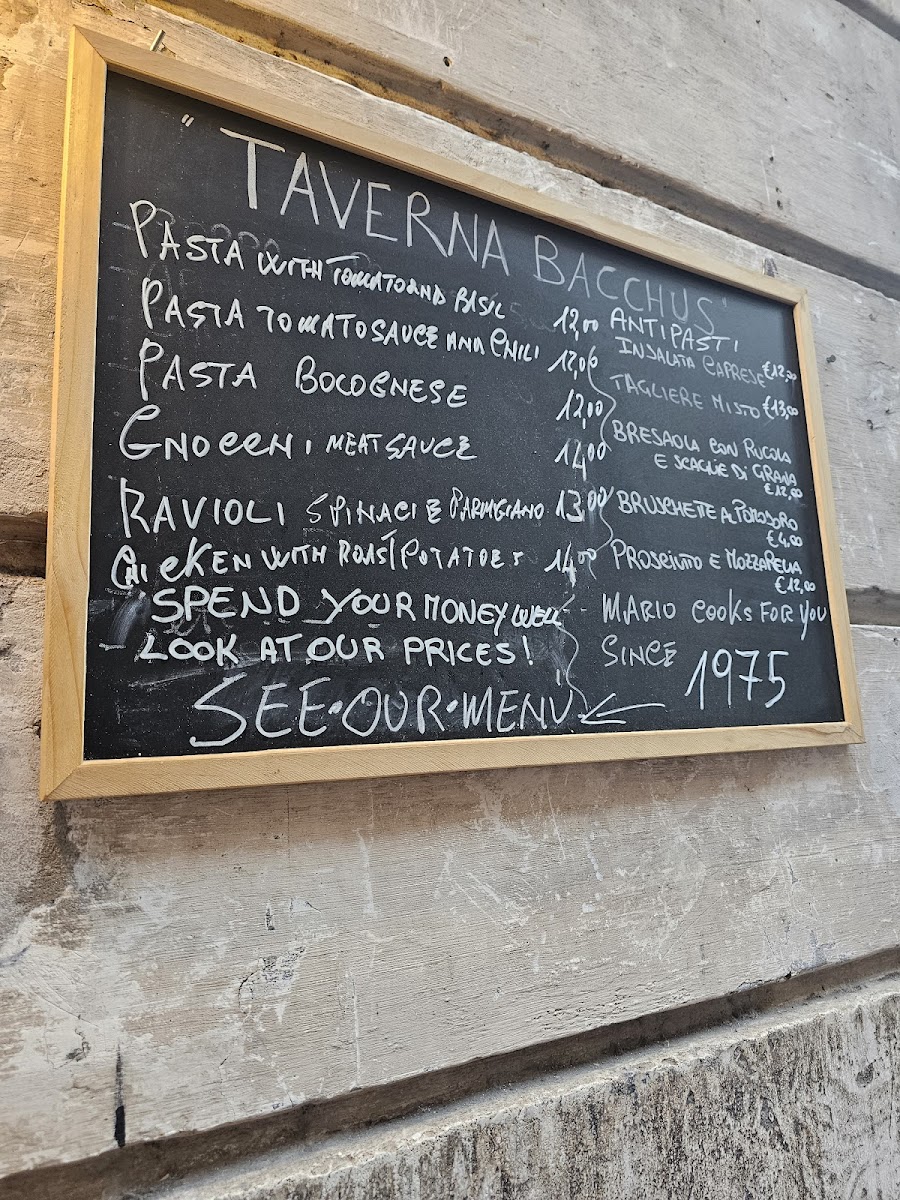 "TAVERNA BACCHUS"
PASTA WITH TOMATO AND BASIL 12,00
PASTA TOMATO SAUCE AND CHILI 12,00
PASTA BOLOGNESE 12,00
GNOCCHI MEAT SAUCE 14,00
RAVIOLI SPINACI E PARMIGIANO 13,00
CHICKEN WITH ROAST POTATOES 14,00
SPEND YOUR MONEY WELL
LOOK AT OUR PRICES!
SEE·OUR·MENU
ANTIPASTI
INSALATA CAPRESE €12,00
TAGLIERE MISTO €13,00
BRESAOLA CON RUCOLA
E SCAGLIE DI GRANA
€12,00
BRUSCHETE AL POMODORO
€4,00
PROSCIUTO E MOZZARELLA
€12,00
MARIO COOKS FOR YOU
SINCE 1975